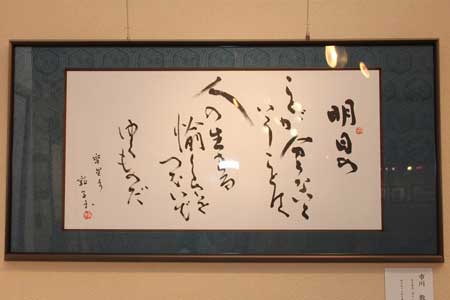 明日の
ことが分らないと
いうことは
人の生きる
愉しさを
つないで
ゆくものだ
市川